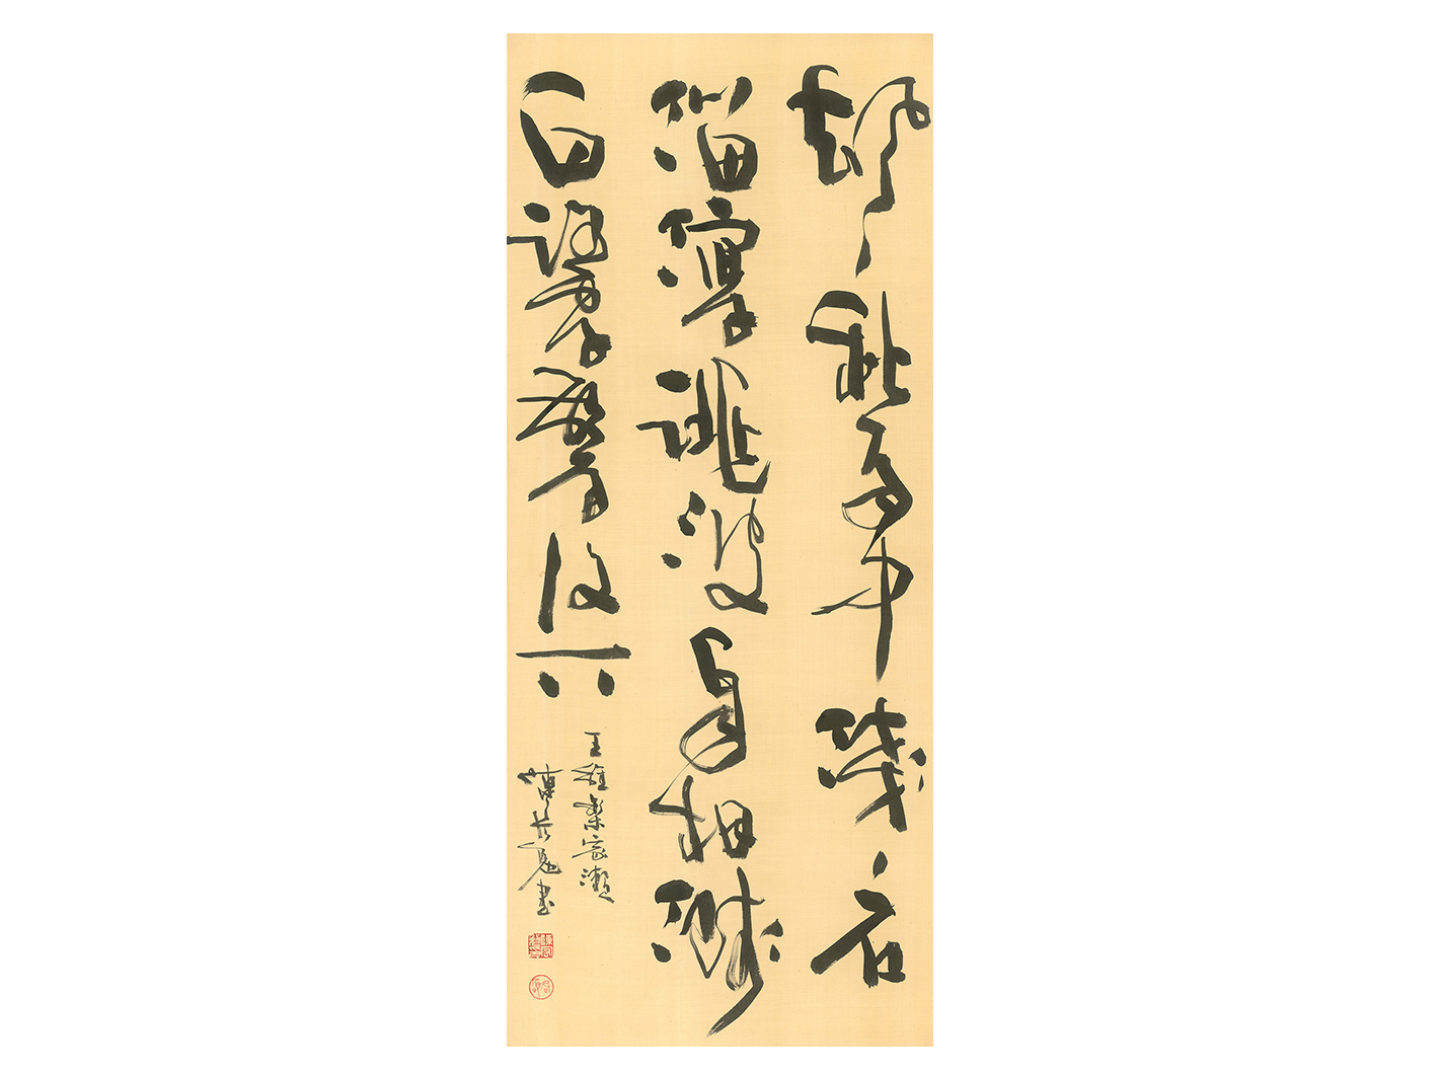 颯々秋雨中淺々石
溜瀉跳波自相濺
白鷺驚復下
王維欒家瀨
書